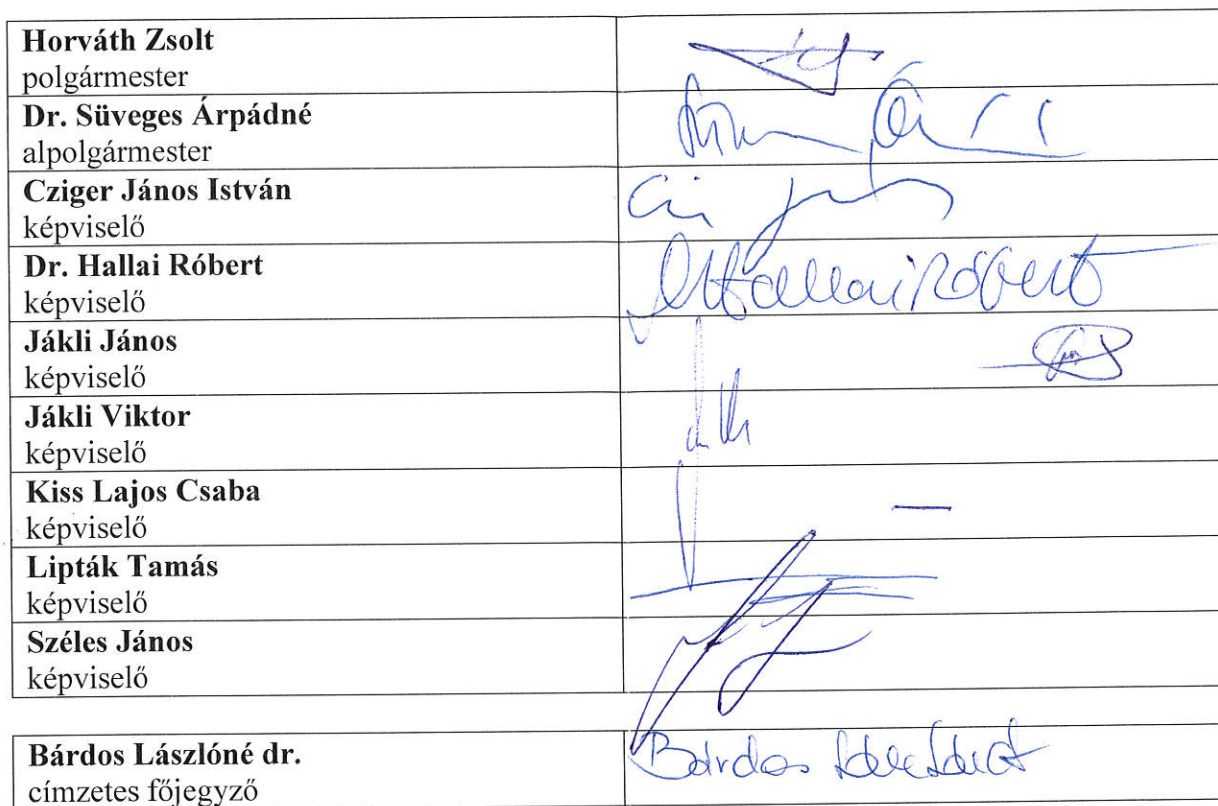 Horváth Zsolt
polgármester
Dr. Süveges Árpádné
alpolgármester
Cziger János István
képviselő
Dr. Hallai Róbert
képviselő
Hallai Róbert
Jákli János
képviselő
Jákli Viktor
képviselő
Kiss Lajos Csaba
képviselő
—
Lipták Tamás
képviselő
Széles János
képviselő
Bárdos Lászlóné dr.
címzetes főjegyző
Bárdos